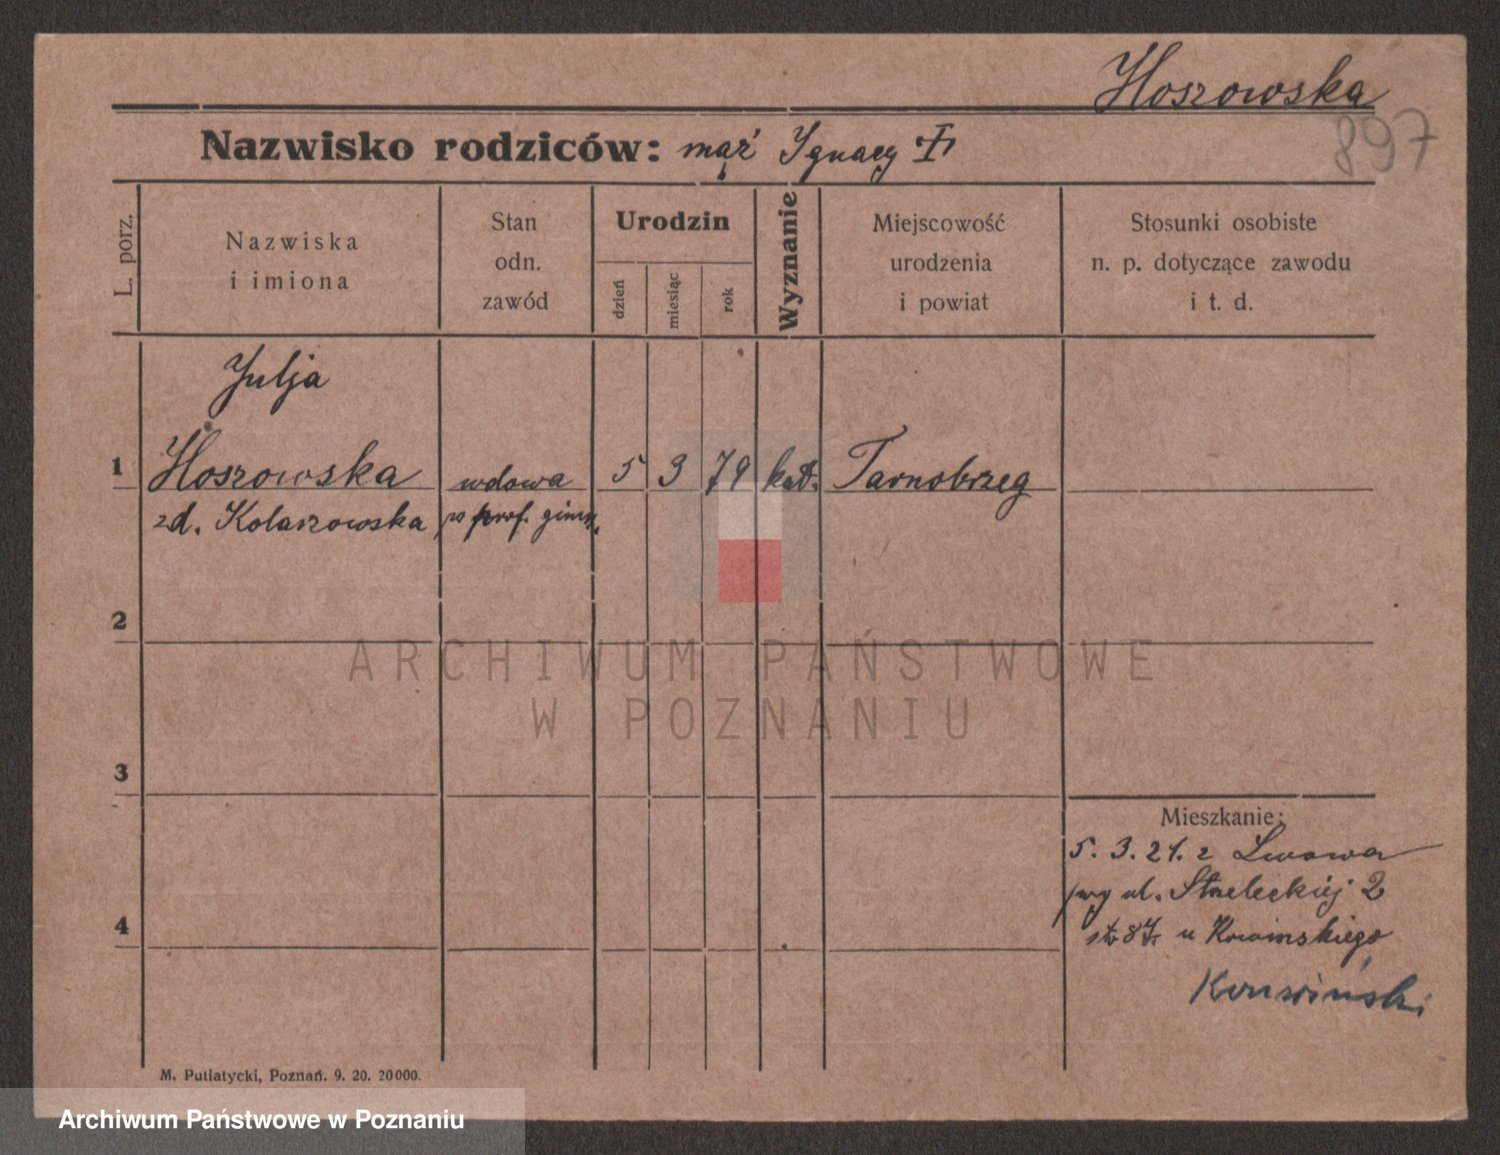 Hoszowska
897
Nazwisko rodziców: mąż Ignacy
L. porz.
Nazwiska
i imiona
Stan
odn.
zawód
Urodzin
dzień
miesiąc
rok
Wyznanie
Miejscowość
urodzenia
i powiat
Stosunki osobiste
n. p. dotyczące zawodu
i t. d.
Julja
1 Hoszowska wdowa 5 3 79 kat. Tarnobrzeg
zd. Kolaszowska po prof. gimn.
2
3
4
Mieszkanie:
5. 3. 21. z Lwowa
przy ul. Strzeleckiej 2
u
M. Putiatycki, Poznań. 9. 20. 20000.
ARCHIWUM PAŃSTWOWE
W POZNANIU
Archiwum Państwowe w Poznaniu